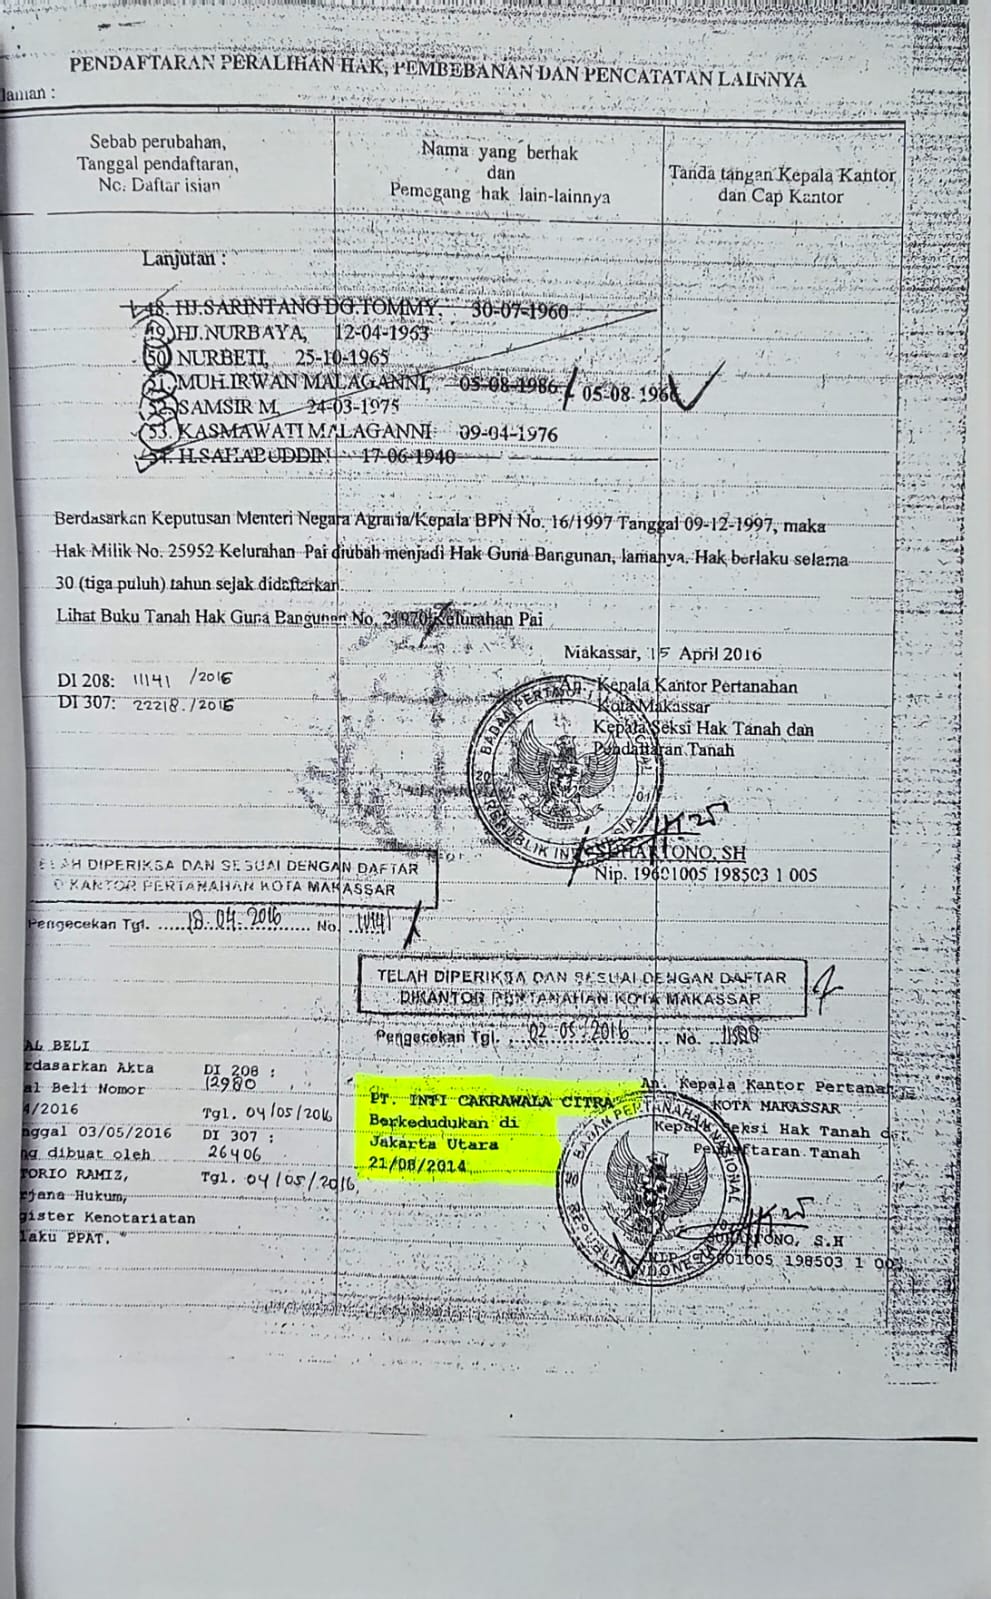 PENDAFTARAN PERALIHAN HAK, PEMBEBANAN DAN PENCATATAN LAINNYA
laman :
Sebab perubahan,
Tanggal pendaftaran,
No. Daftar isian
Nama yang berhak
dan
Pemegang hak lain-lainnya
Tanda tangan Kepala Kantor
dan Cap Kantor
Lanjutan :
48. HJ.SARINTANG DG.TOMMY, 30-07-1960
49. HJ.NURBAYA, 12-04-1963
50 NURBETI, 25-10-1965
51. MUH.IRWAN MALAGANNI, 05-08-1986 05-08-1966
52. SAMSIR M, 24-03-1975
53. KASMAWATI MALAGANNI 09-04-1976
54. H.SAHABUDDIN 17-06-1940
Berdasarkan Keputusan Menteri Negara Agraria/Kepala BPN No. 16/1997 Tanggal 09-12-1997, maka
Hak Milik No. 25952 Kelurahan Pai diubah menjadi Hak Guna Bangunan, lamanya Hak berlaku selama
30 (tiga puluh) tahun sejak didaftarkan
Lihat Buku Tanah Hak Guna Bangunan No. 21970/Kelurahan Pai
Makassar, 15 April 2016
DI 208: 11141 /2016
DI 307: 22218./2016
An. Kepala Kantor Pertanahan
Kota Makassar
Kepala Seksi Hak Tanah dan
Pendaftaran Tanah
BADAN PERTANAHAN NASIONAL
REPUBLIK INDONESIA
SUHARTONO, SH
Nip. 19601005 198503 1 005
ELAH DIPERIKSA DAN SESUAI DENGAN DAFTAR
KANTOR PERTANAHAN KOTA MAKASSAR
Pengecekan Tgl. 18.04.2016 No. 11141
TELAH DIPERIKSA DAN SESUAI DENGAN DAFTAR
DIKANTOR PERTANAHAN KOTA MAKASSAR
Pengecekan Tgl. 02-05-2016 No.
AL BELI
rdasarkan Akta
al Beli Nomor
4/2016
nggal 03/05/2016
ng dibuat oleh
TORIO RAMIZ,
rjana Hukum,
gister Kenotariatan
laku PPAT.
DI 208 :
12980
Tgl. 04/05/2016
DI 307 :
26406
Tgl. 04/05/2016
PT. INTI CAKRAWALA CITRA
Berkedudukan di
Jakarta Utara
21/08/2014
An. Kepala Kantor Pertana
KOTA MAKASSAR
Kepala Seksi Hak Tanah da
Pendaftaran Tanah
BADAN PERTANAHAN NASIONAL
REPUBLIK INDONESIA
SUHARTONO, S.H
NIP. 19601005 198503 1 00